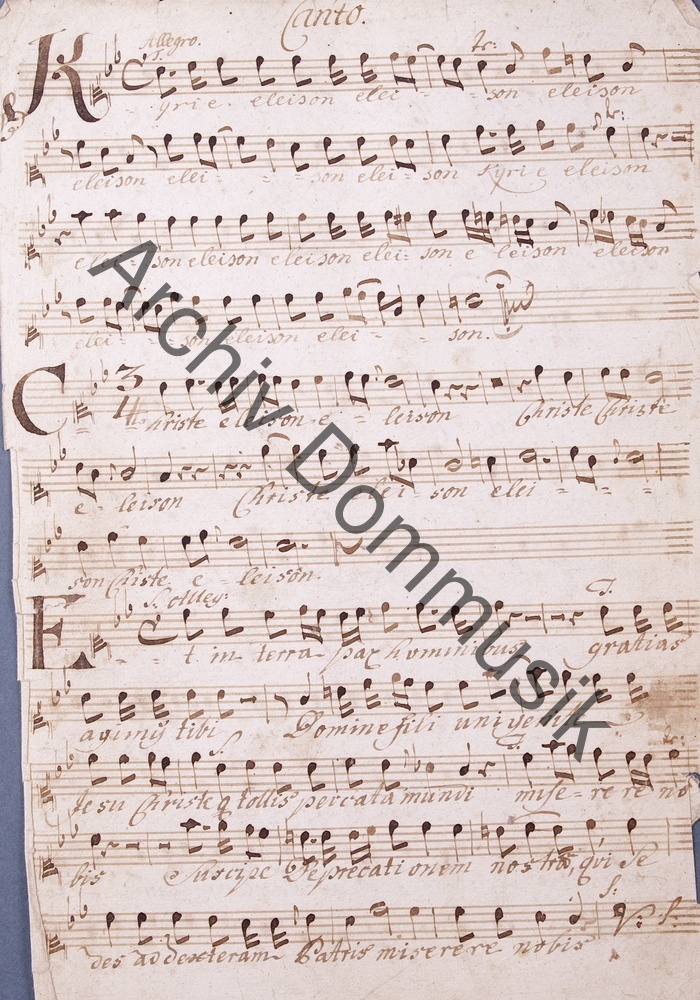 Canto.
Allegro.
S. tr:
Kyrie eleison elei - - - son eleison
eleison elei - - - son elei - son Kyrie eleison
elei - son eleison eleison elei - son e leison eleison
elei - - - son eleison elei - - - son.
C 3/4 Christe eleison e - leison Christe Christe
e - leison Christe elei - son elei - - - -
son Christe e - leison.
S. Alleg:
Et in terra pax hominibus gratias
agimus tibi Domine fili unigenit
Jesu Christe q tollis peccata mundi mise - re re no
bis Suscipe Deprecationem nostrā, qui se
des ad dexteram Patris miserere nobis
V: S:
Archiv Dommusik